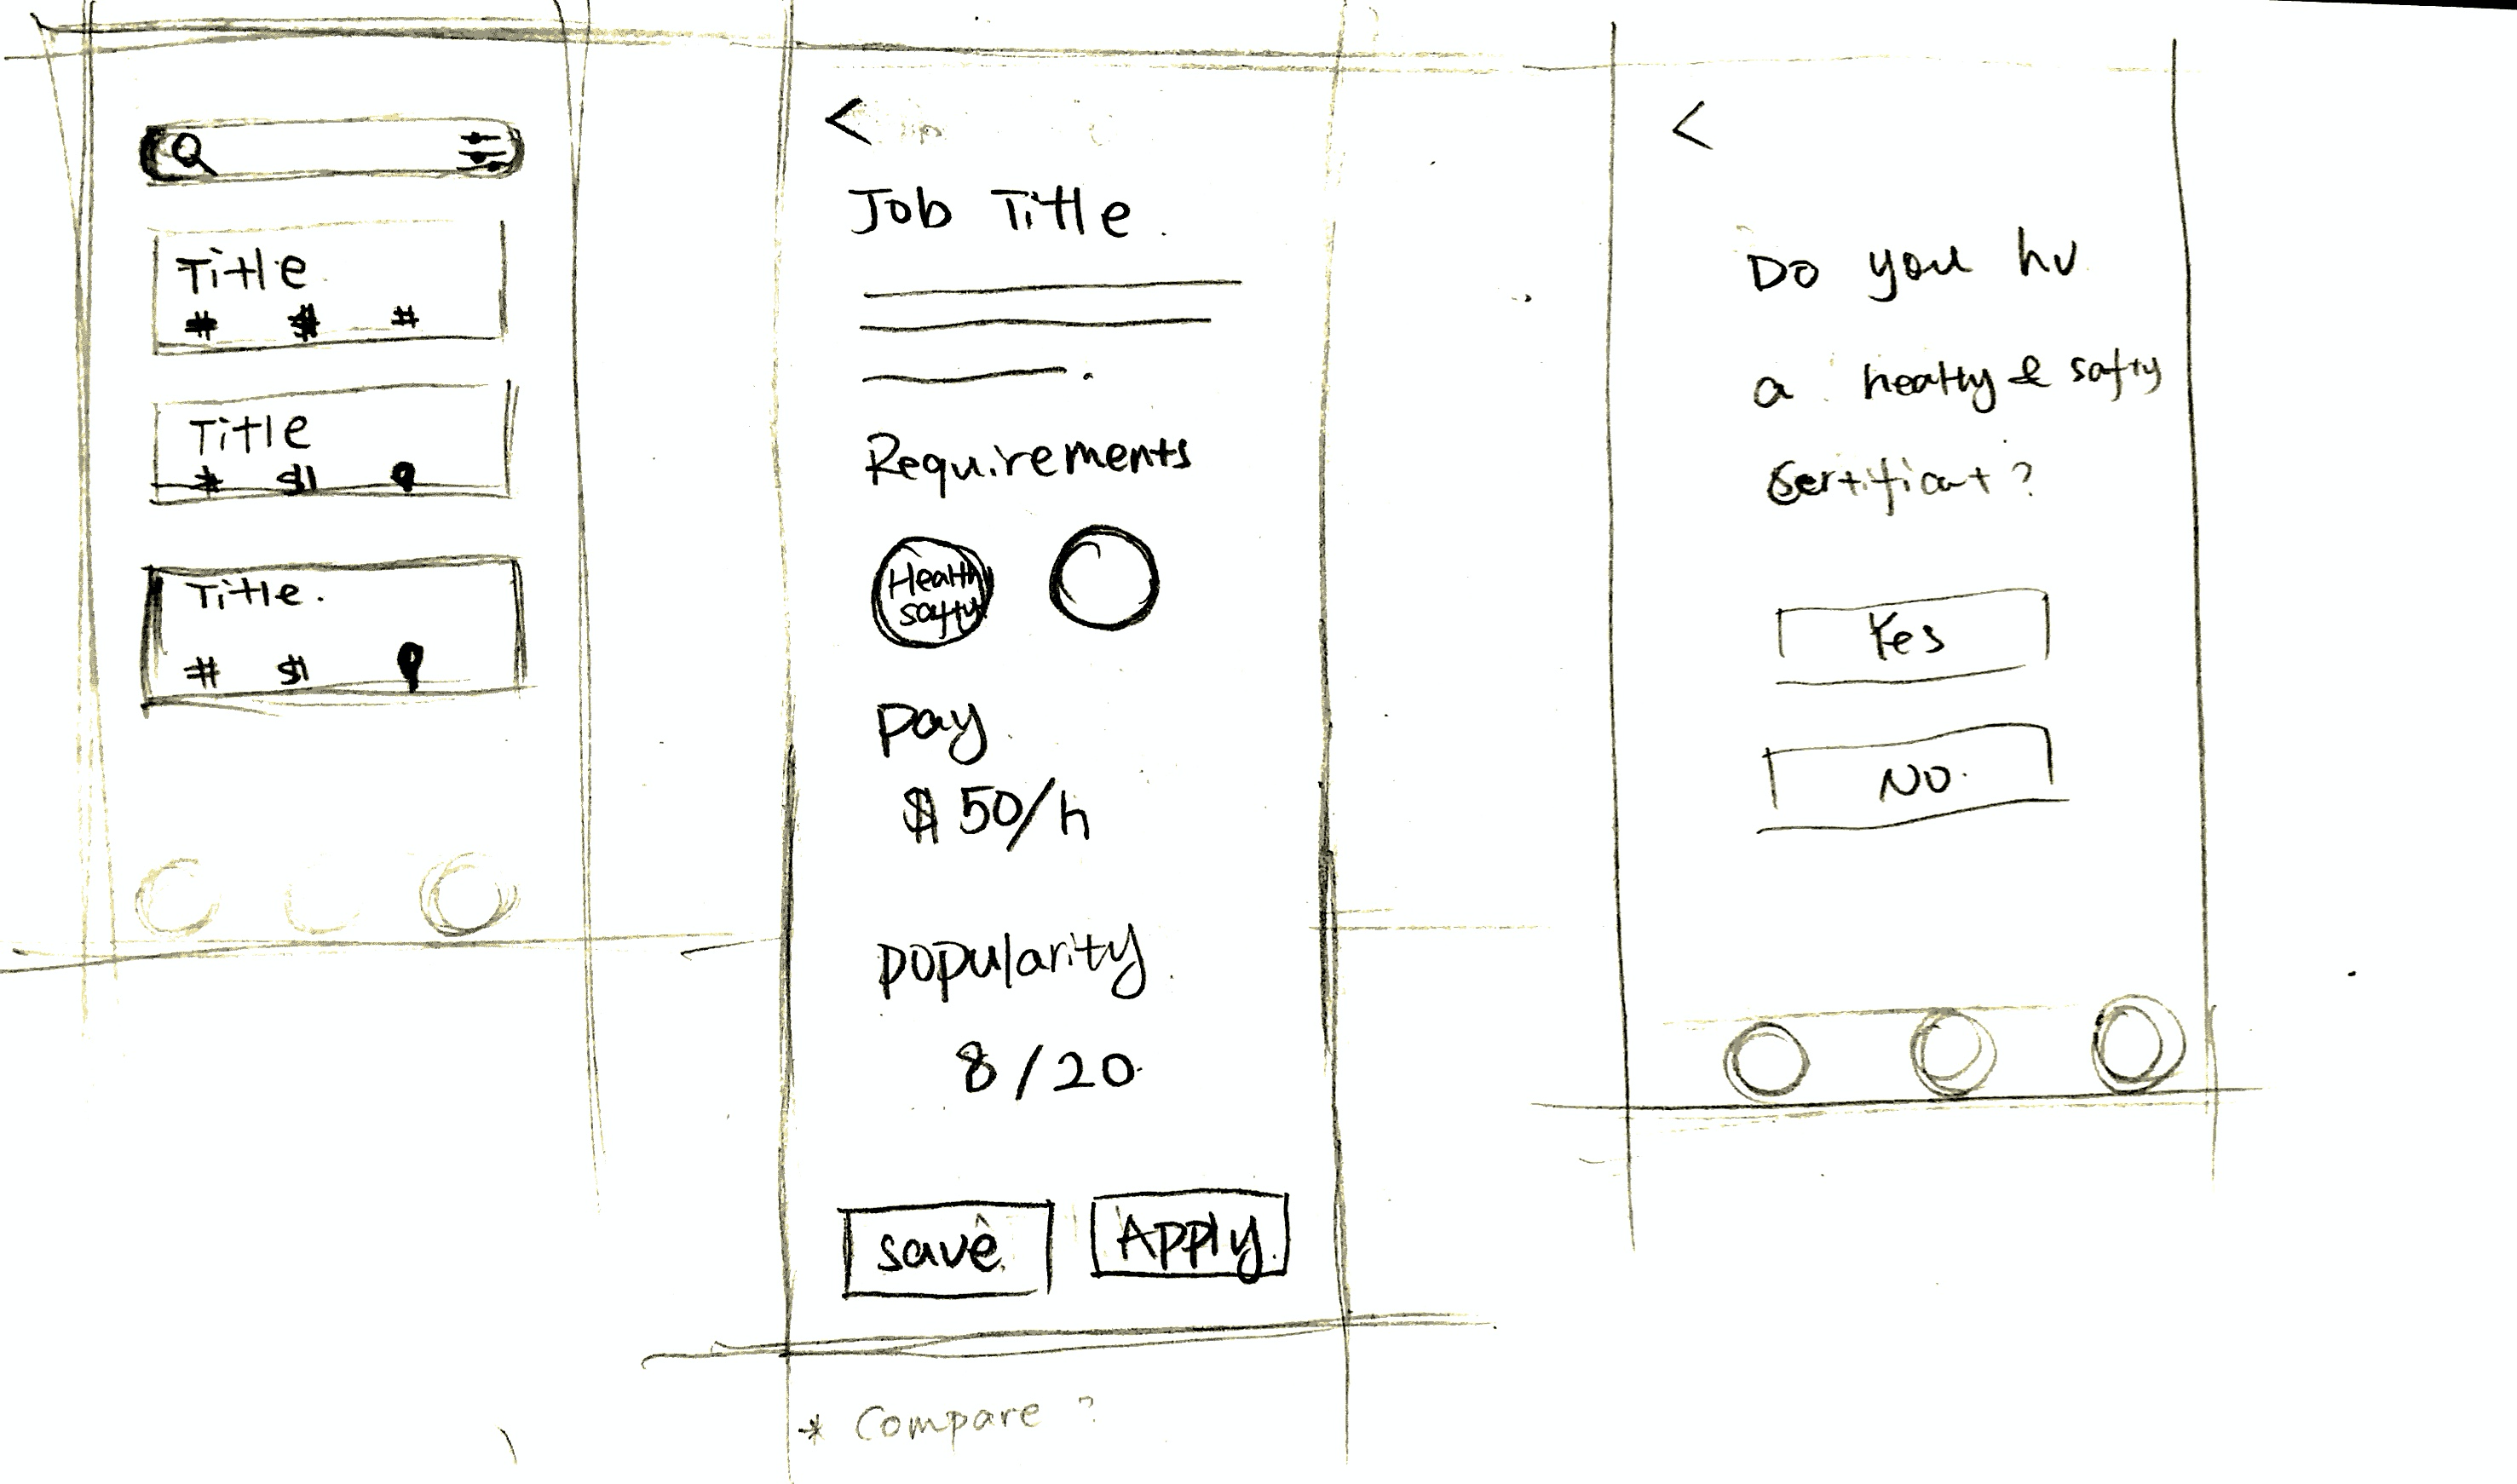 Title
# $ #
Title
# $
Title.
# $
<
Job Title.
Requirements
Health
safty
Pay
$ 50/h
popularity
8/20
save
Apply
* Compare ?
<
Do you hv
a healty & safty
Sertificat?
Yes
No.